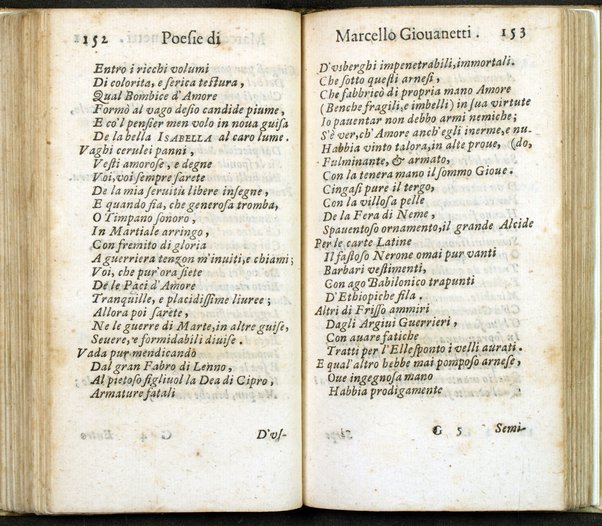 152 Poesie di
Entro i ricchi volumi
Di colorita, e serica testura,
Qual Bombice d'Amore
Formò al vago desio candide piume,
E co'l pensier men volo in noua guisa
De la bella ISABELLA al caro lume.
Vaghi cerulei panni,
Vesti amorose, e degne
Voi, voi sempre sarete
De la mia seruitù libere insegne,
E quando fia, che generosa tromba,
O Timpano sonoro,
In Martiale arringo,
Con fremito di gloria
A guerriera tenzon m'inuiti, e chiami;
Voi, che pur'ora siete
De le Paci d'Amore
Tranquille, e placidissime liuree;
Allora poi sarete,
Ne le guerre di Marte, in altre guise,
Seuere, e formidabili diuise.
Vada pur mendicando
Dal gran Fabro di Lenno,
Al pietoso figliuol la Dea di Cipro,
Armature fatali
G 4 D'vs-
Marcello Giouanetti. 153
D'vsberghi impenetrabili, immortali.
Che sotto questi arnesi,
Che fabbricò di propria mano Amore
(Benche fragili, e imbelli) in sua virtute
Io pauentar non debbo armi nemiche;
S'è ver, ch'Amore anch'egli inerme, e nu-
Habbia vinto talora, in alte proue, (do,
Fulminante, & armato,
Con la tenera mano il sommo Gioue.
Cingasi pure il tergo,
Con la villosa pelle
De la Fera di Neme,
Spauentoso ornamento, il grande Alcide
Per le carte Latine
Il fastoso Nerone omai pur vanti
Barbari vestimenti,
Con ago Babilonico trapunti
D'Ethiopiche fila.
Altri di Frisso ammiri
Dagli Argiui Guerrieri,
Con auare fatiche
Tratti per l'Ellesponto i velli aurati.
E qual'altro hebbe mai pomposo arnese,
Oue ingegnosa mano
Habbia prodigamente
G 5 Semi-